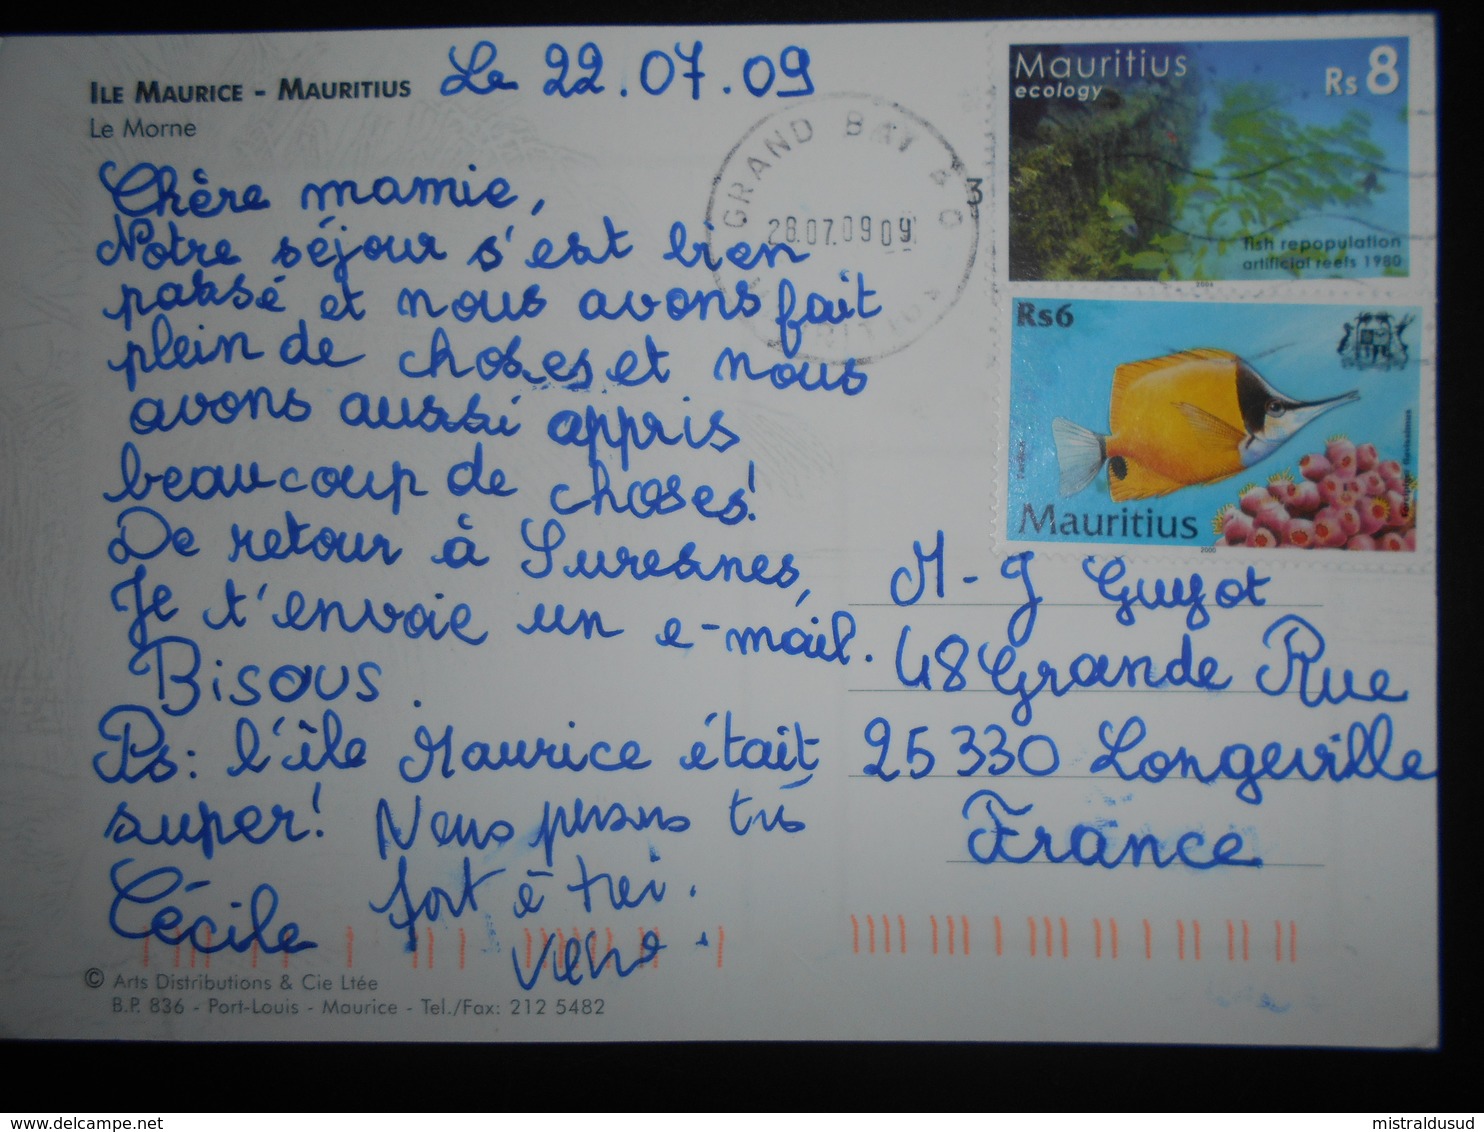 ILE MAURICE - MAURITIUS
Le Morne
Le 22.07.09
Chère mamie,
Notre séjour s'est bien
passé et nous avons fait
plein de choses et nous
avons aussi appris
beaucoup de choses!
De retour à Suresnes,
Je t'envoie un e-mail.
Bisous.
Ps: l'île Maurice était
super! Nous pensons très
Cécile fort à toi.
© Arts Distributions & Cie Ltée
B.P. 836 - Port-Louis - Maurice - Tel./Fax: 212 5482
GRAND BAY
28.07.09 09
3
Mauritius
ecology
Rs 8
fish repopulation
artificial reefs 1980
2004
Rs6
Mauritius
2000
M-J Guyot
48 Grande Rue
25330 Longeville
France
delcampe.net
mistraldusud